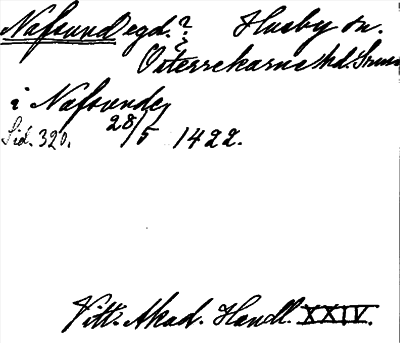 Nafsund egd. ? Husby sn.
Österrekarne hd.
i Nafsunde,
Sid. 320. 28/5 1422.
Vitt. Akad. Handl. XXIV.